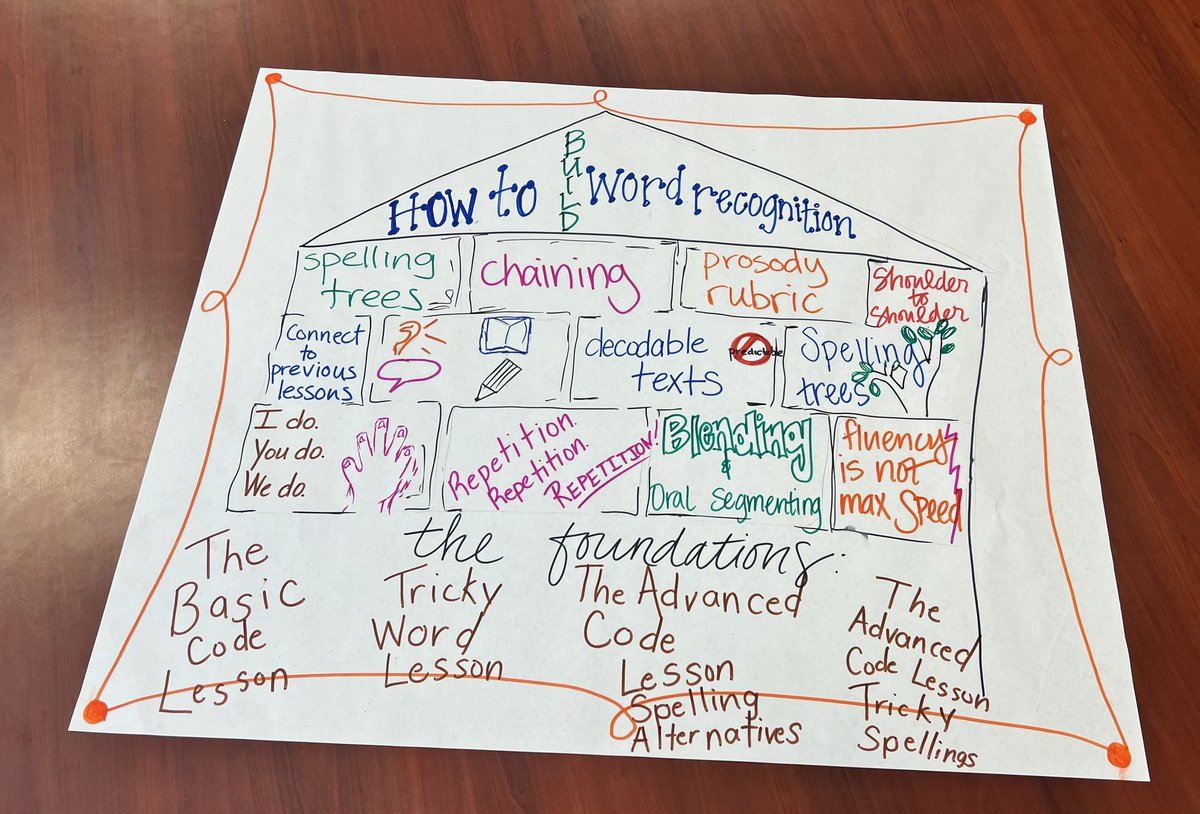 How to BUILD Word recognition
spelling trees
chaining
prosody rubric
Shoulder to Shoulder
Connect to previous lessons
decodable texts
predictable
Spelling trees
I do.
You do.
We do.
Repetition.
Repetition.
REPETITION!
Blending
&
Oral Segmenting
fluency
is not
max Speed
the foundations:
The
Basic
Code
Lesson
Tricky
Word
Lesson
The Advanced
Code
Lesson
Spelling
Alternatives
The
Advanced
Code Lesson
Tricky
Spellings